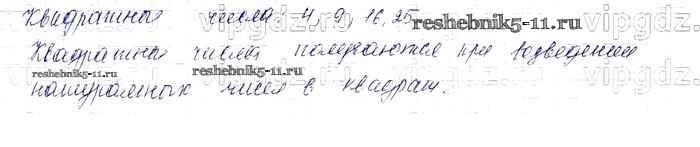 Квадратные числа 4, 9, 16, 25 reshebnik5-11.ru.
Квадратные числа получаются при возведении
reshebnik5-11.ru reshebnik5-11.ru
натуральных чисел в квадрат.
vipgdz vipgdz vipgdz